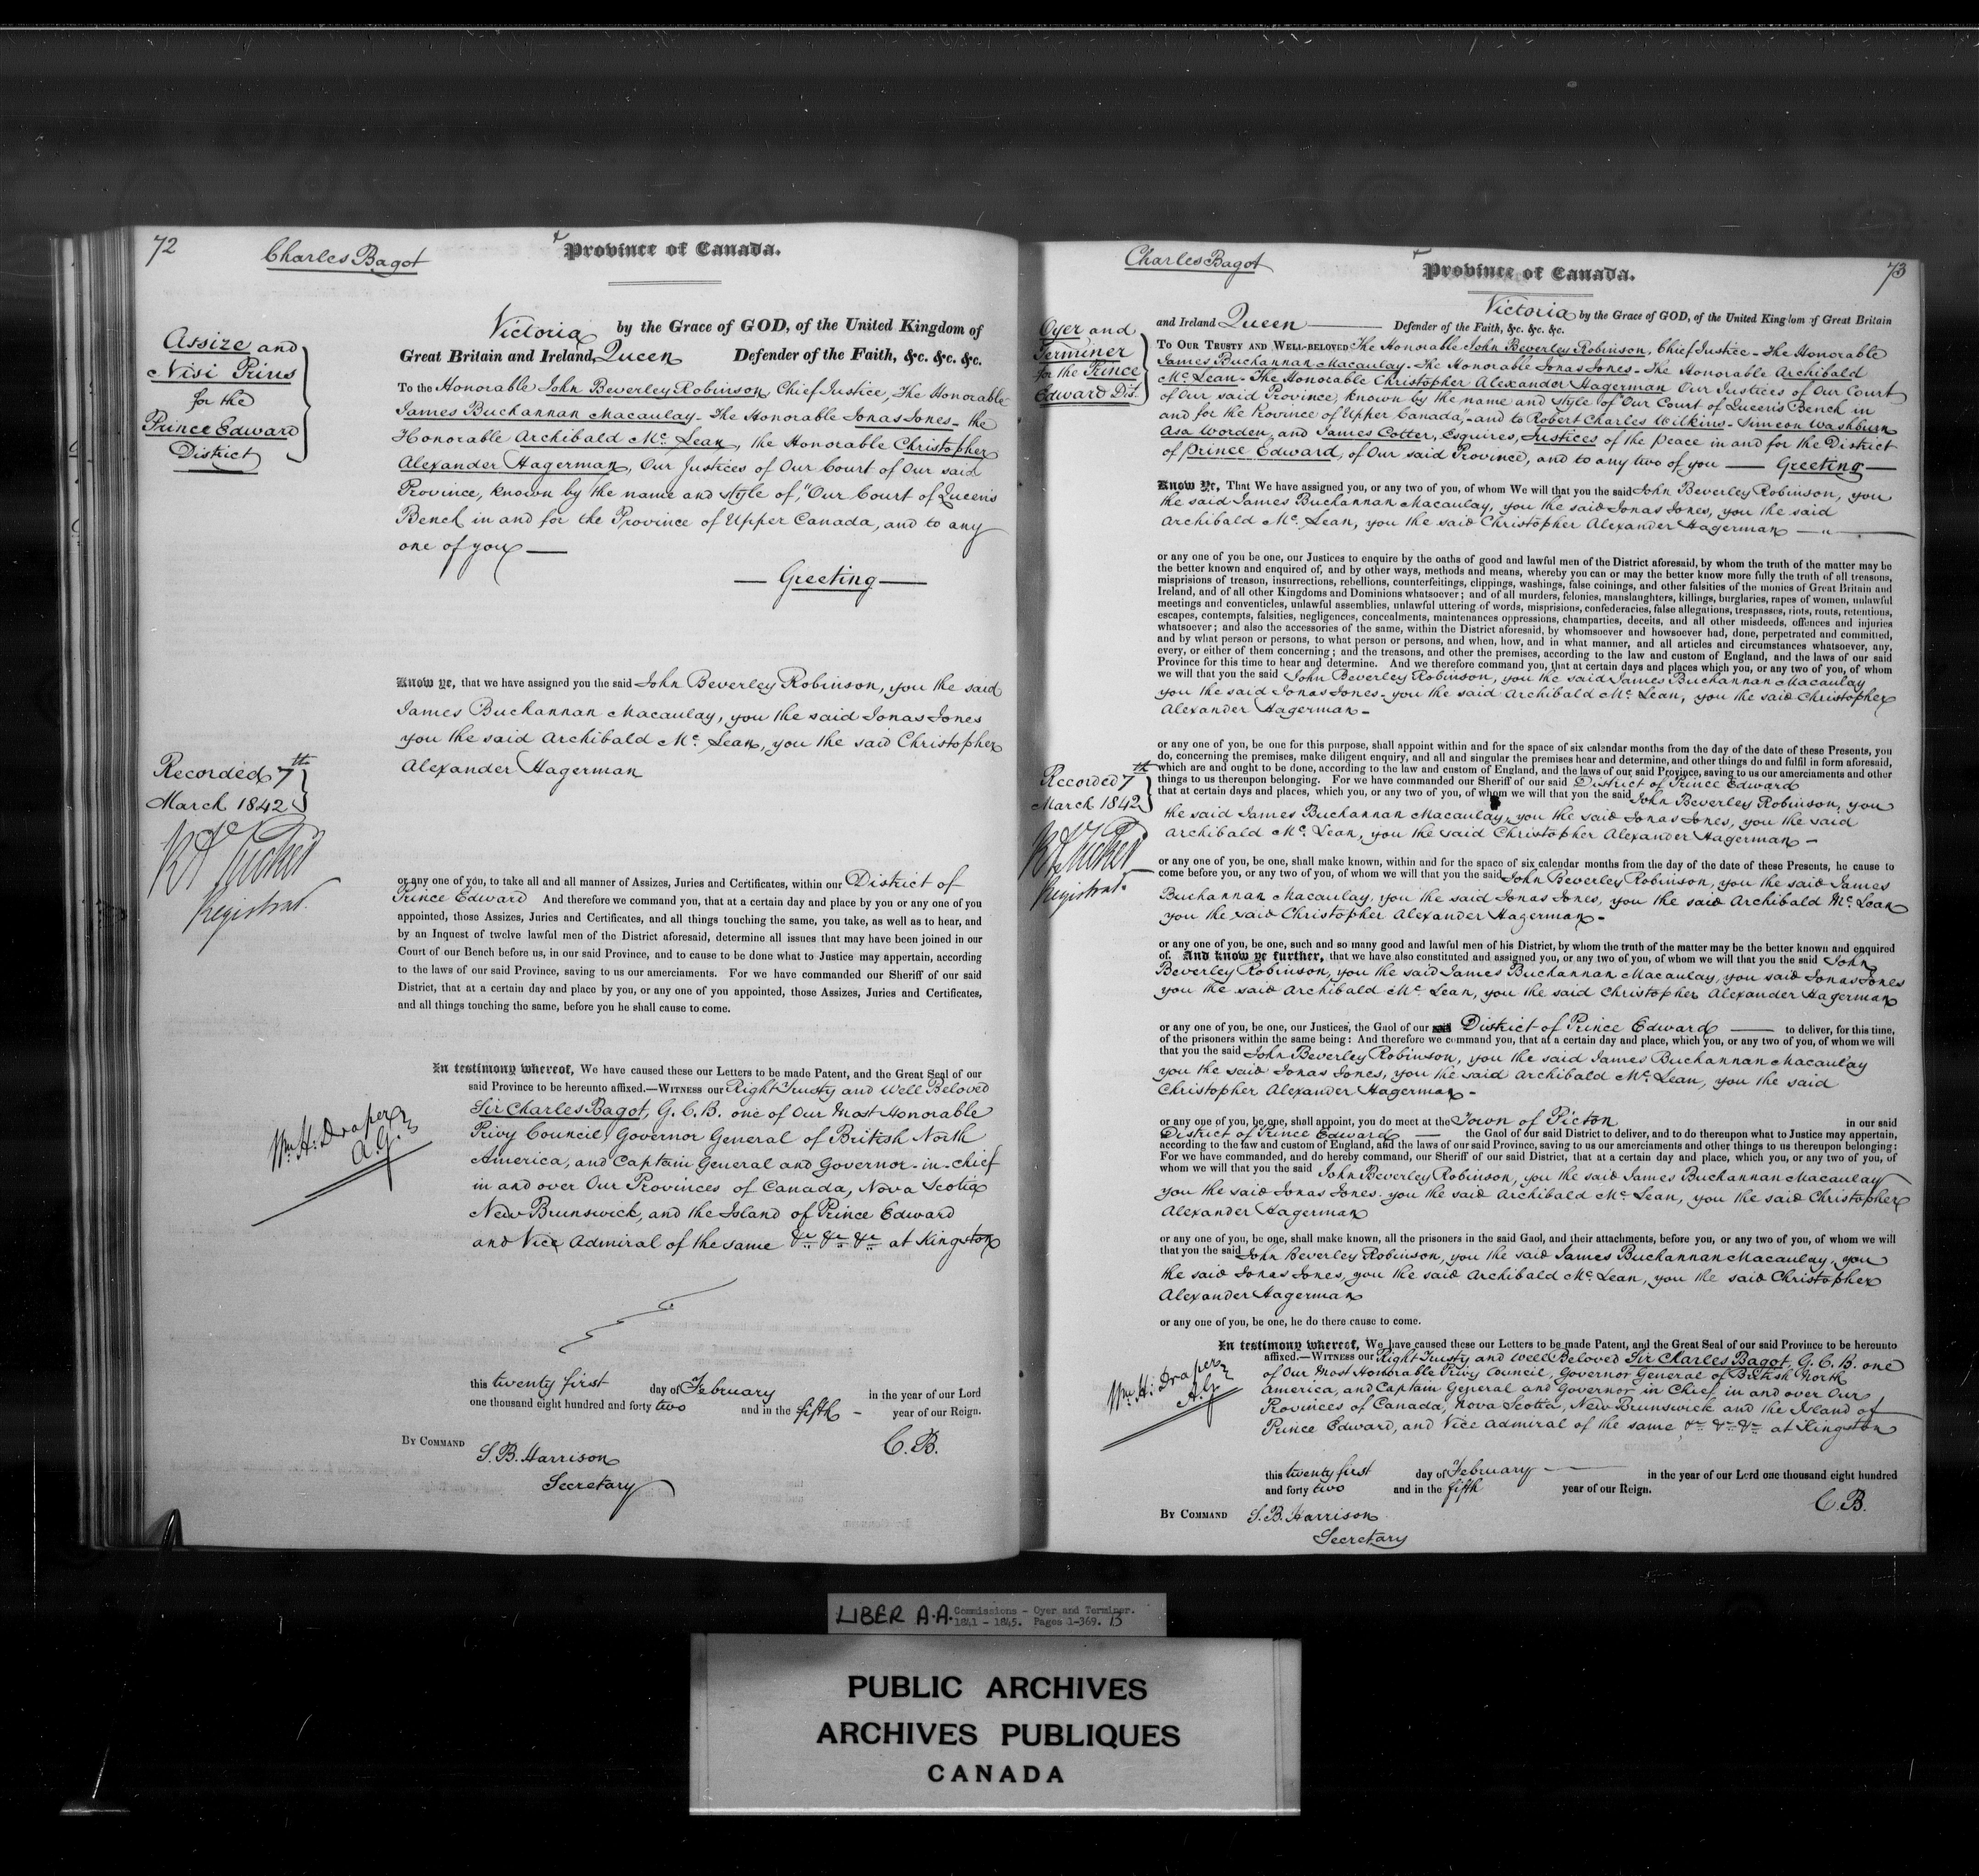 72
Charles Bagot
Province of Canada.
Assize and
Nisi Prius
for the
Prince Edward
District
Victoria by the Grace of GOD, of the United Kingdom of
Great Britain and Ireland, Queen Defender of the Faith, &c. &c. &c.
To the Honorable John Beverley Robinson, Chief Justice, The Honorable
James Buchannan Macaulay - The Honorable Jonas Jones - the
Honorable Archibald Mc. Lean, the Honorable Christopher
Alexander Hagerman, Our Justices of Our Court of Our said
Province, known by the name and style of, "Our Court of Queen's
Bench in and for the Province of Upper Canada, and to any
one of you —
— Greeting —
Know ye, that we have assigned you the said John Beverley Robinson, you the said
James Buchannan Macaulay, you the said Jonas Jones
you the said Archibald Mc. Lean, you the said Christopher
Alexander Hagerman
Recorded 7th
March 1842
Registrar.
or any one of you, to take all and all manner of Assizes, Juries and Certificates, within our District of
Prince Edward And therefore we command you, that at a certain day and place by you or any one of you
appointed, those Assizes, Juries and Certificates, and all things touching the same, you take, as well as to hear, and
by an Inquest of twelve lawful men of the District aforesaid, determine all issues that may have been joined in our
Court of our Bench before us, in our said Province, and to cause to be done what to Justice may appertain, according
to the laws of our said Province, saving to us our amerciaments. For we have commanded our Sheriff of our said
District, that at a certain day and place by you, or any one of you appointed, those Assizes, Juries and Certificates,
and all things touching the same, before you he shall cause to come.
In testimony whereof, We have caused these our Letters to be made Patent, and the Great Seal of our
said Province to be hereunto affixed.—WITNESS our Right Trusty and Well Beloved
Sir Charles Bagot, G. C. B. one of Our Most Honorable
Privy Council, Governor General of British North
America, and Captain General and Governor-in-chief
in and over Our Provinces of Canada, Nova Scotia
New Brunswick, and the Island of Prince Edward
and Vice Admiral of the same &c &c &c at Kingston
Wm. H: Draper
A.G.
this twenty first day of February in the year of our Lord
one thousand eight hundred and forty two and in the fifth - year of our Reign.
C. B.
BY COMMAND
S. B. Harrison
Secretary
Charles Bagot
Province of Canada.
73
Oyer and
Terminer
for the Prince
Edward Dis.
Victoria by the Grace of GOD, of the United Kingdom of Great Britain
and Ireland Queen — Defender of the Faith, &c. &c. &c.
TO OUR TRUSTY AND WELL-BELOVED The Honorable John Beverley Robinson, Chief Justice - The Honorable
James Buchannan Macaulay - The Honorable Jonas Jones - The Honorable Archibald
Mc. Lean - The Honorable Christopher Alexander Hagerman Our Justices of Our Court
of Our said Province, known by the name and style of "Our Court of Queen's Bench in
and for the Province of Upper Canada," - and to Robert Charles Wilkins - Simeon Washburn
Asa Worden, and James Cotter, Esquires, Justices of the peace in and for the District
of Prince Edward, of Our said Province, and to any two of you — Greeting —
Know Ye, That We have assigned you, or any two of you, of whom We will that you the said John Beverley Robinson, you
the said James Buchannan Macaulay, you the said Jonas Jones, you the said
Archibald Mc. Lean, you the said Christopher Alexander Hagerman — " —
or any one of you be one, our Justices to enquire by the oaths of good and lawful men of the District aforesaid, by whom the truth of the matter may be
the better known and enquired of, and by other ways, methods and means, whereby you can or may the better know more fully the truth of all treasons,
misprisions of treason, insurrections, rebellions, counterfeitings, clippings, washings, false coinings, and other falsities of the monies of Great Britain and
Ireland, and of all other Kingdoms and Dominions whatsoever; and of all murders, felonies, manslaughters, killings, burglaries, rapes of women, unlawful
meetings and conventicles, unlawful assemblies, unlawful uttering of words, misprisions, confederacies, false allegations, trespasses, riots, routs, retentions,
escapes, contempts, falsities, negligences, concealments, maintenances oppressions, champarties, deceits, and all other misdeeds, offences and injuries
whatsoever; and also the accessories of the same, within the District aforesaid, by whomsoever and howsoever had, done, perpetrated and committed,
and by what person or persons, to what person or persons, and when, how, and in what manner, and all articles and circumstances whatsoever, any,
every, or either of them concerning; and the treasons, and other the premises, according to the law and custom of England, and the laws of our said
Province for this time to hear and determine. And we therefore command you, that at certain days and places which you, or any two of you, of whom
we will that you the said John Beverley Robinson, you the said James Buchannan Macaulay
you the said Jonas Jones - you the said Archibald Mc. Lean, you the said Christopher
Alexander Hagerman -
or any one of you, be one for this purpose, shall appoint within and for the space of six calendar months from the day of the date of these Presents, you
do, concerning the premises, make diligent enquiry, and all and singular the premises hear and determine, and other things do and fulfil in form aforesaid,
which are and ought to be done, according to the law and custom of England, and the laws of our said Province, saving to us our amerciaments and other
things to us thereupon belonging. For we have commanded our Sheriff of our said District of Prince Edward
that at certain days and places, which you, or any two of you, of whom we will that you the said John Beverley Robinson, you
the said James Buchannan Macaulay, you the said Jonas Jones, you the said
Archibald Mc. Lean, you the said Christopher Alexander Hagerman -
Recorded 7th
March 1842
Registrar.
or any one of you, be one, shall make known, within and for the space of six calendar months from the day of the date of these Presents, he cause to
come before you, or any two of you, of whom we will that you the said John Beverley Robinson, you the said James
Buchannan Macaulay, you the said Jonas Jones, you the said Archibald Mc. Lean
you the said Christopher Alexander Hagerman -
or any one of you, be one, such and so many good and lawful men of his District, by whom the truth of the matter may be the better known and enquired
of. And know ye further, that we have also constituted and assigned you, or any two of you, of whom we will that you the said John
Beverley Robinson, you the said James Buchannan Macaulay, you said Jonas Jones
you the said Archibald Mc. Lean, you the said Christopher Alexander Hagerman
or any one of you, be one, our Justices, the Gaol of our said District of Prince Edward — to deliver, for this time,
of the prisoners within the same being: And therefore we command you, that at a certain day and place, which you, or any two of you, of whom we will
that you the said John Beverley Robinson, you the said James Buchannan Macaulay
you the said Jonas Jones, you the said Archibald Mc. Lean, you the said
Christopher Alexander Hagerman -
or any one of you, be one, shall appoint, you do meet at the Town of Picton in our said
District of Prince Edward — the Gaol of our said District to deliver, and to do thereupon what to Justice may appertain,
according to the law and custom of England, and the laws of our said Province, saving to us our amerciaments and other things to us thereupon belonging:
For we have commanded, and do hereby command, our Sheriff of our said District, that at a certain day and place, which you, or any two of you, of
whom we will that you the said John Beverley Robinson, you the said James Buchannan Macaulay
you the said Jonas Jones. you the said Archibald Mc. Lean, you the said Christopher
Alexander Hagerman
or any one of you, be one, shall make known, all the prisoners in the said Gaol, and their attachments, before you, or any two of you, of whom we will
that you the said John Beverley Robinson, you the said James Buchannan Macaulay, you
the said Jonas Jones, you the said Archibald Mc. Lean, you the said Christopher
Alexander Hagerman
or any one of you, be one, he do there cause to come.
In testimony whereof, We have caused these our Letters to be made Patent, and the Great Seal of our said Province to be hereunto
affixed.—WITNESS our Right Trusty and Well Beloved Sir Charles Bagot, G. C. B. one
of Our Most Honorable Privy Council, Governor General of British North
America, and Captain General and Governor in Chief, in and over Our
Provinces of Canada, Nova Scotia, New Brunswick and the Island of
Prince Edward, and Vice Admiral of the same &c &c &c at Kingston
Wm. H: Draper
A.G
this twenty first day of February — in the year of our Lord one thousand eight hundred
and forty two and in the fifth year of our Reign.
C. B.
BY COMMAND S. B. Harrison
Secretary
LIBER A.A. Commissions - Oyer and Terminer.
1841 - 1845. Pages 1-369. 13
PUBLIC ARCHIVES
ARCHIVES PUBLIQUES
CANADA